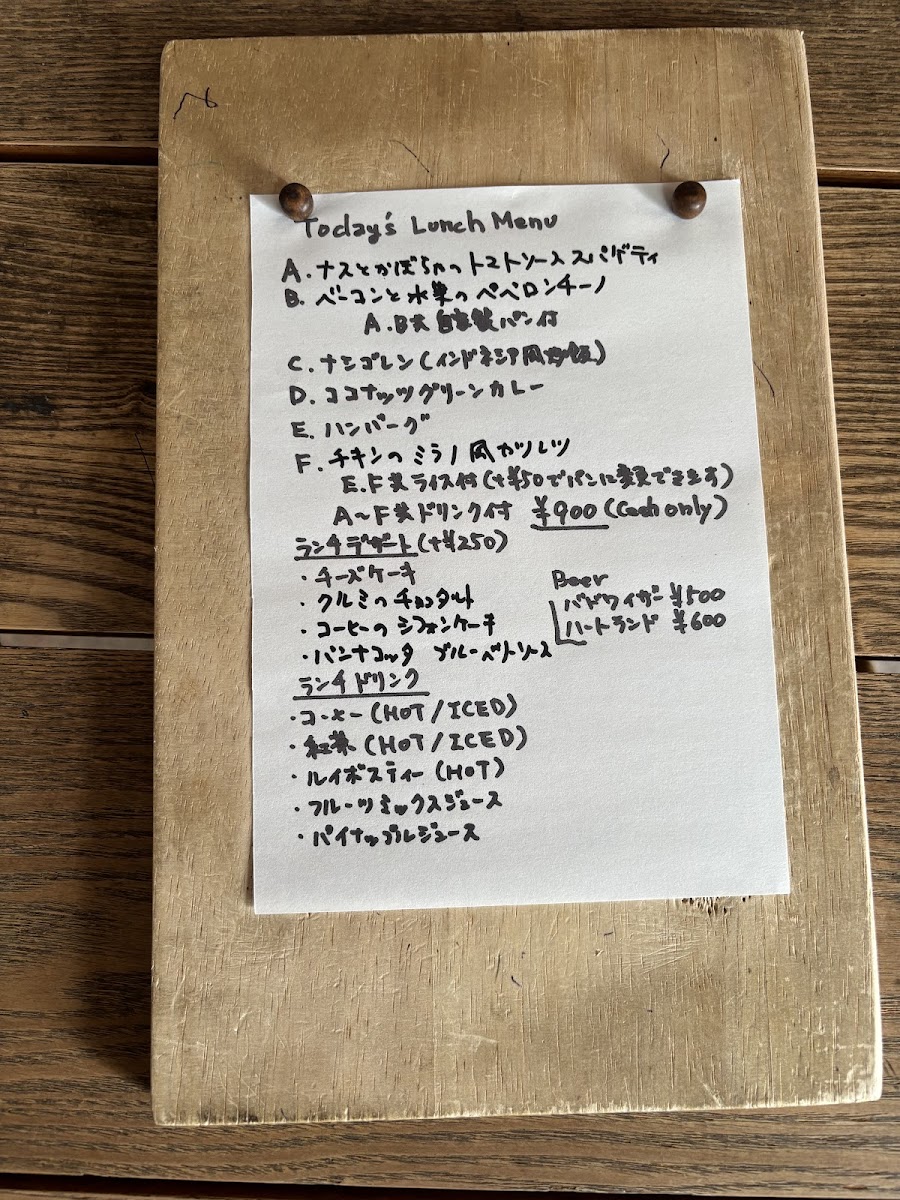 Today's Lunch Menu
A. ナスとかぼちゃのトマトソーススパゲティ
B. ベーコンと水菜のペペロンチーノ
A.B共自家製パン付
C. ナシゴレン(インドネシア風炒飯)
D. ココナッツグリーンカレー
E. ハンバーグ
F. チキンのミラノ風カツレツ
E.F共ライス付(+¥50でパンに変更できます)
A〜F共ドリンク付 ¥900(Cash only)
ランチデザート(+¥250)
・チーズケーキ
・クルミのチョコタルト
・コーヒーのシフォンケーキ
・パンナコッタ ブルーベリーソース
Beer
バドワイザー ¥500
ハートランド ¥600
ランチドリンク
・コーヒー(HOT/ICED)
・紅茶(HOT/ICED)
・ルイボスティー(HOT)
・フルーツミックスジュース
・パイナップルジュース